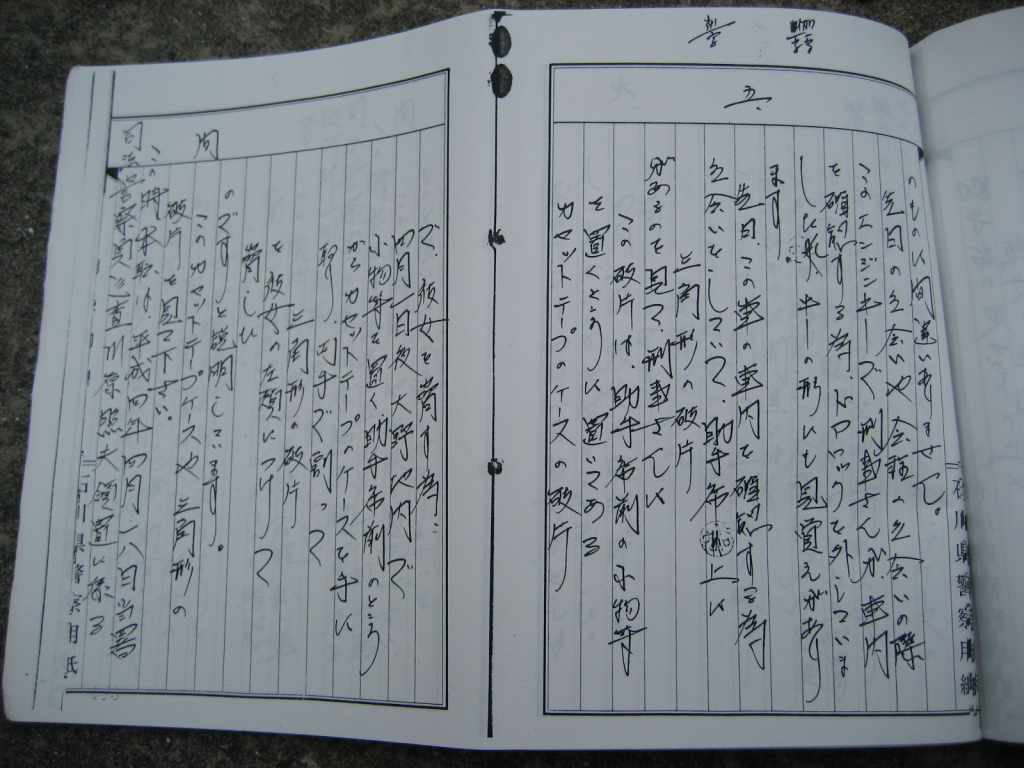 のものに間違いありません。
先日の立会いや会社の立会いの際
このエンジンキーで、刑事さんが車内
を確認する為、ドアロックを外していま
した キーの形にも見覚えがあり
ます
五、
先日、この車の車内を確認する為
立会いをしていて、助手席 上に
三角形の破片
があるのを見て、刑事さんに
この破片は、助手席前の小物等
を置くところに置いてある
カセットテープのケースの破片
で、彼女を脅す為、
四月一日夜、大野 内で
小物等を置く、助手席前のところ
からカセットテープのケースを手に
取り、両手で割って
三角形の破片
を彼女の左頬につけて
脅した
のです と説明しています。
問
このカセットテープケースや三角形の
破片を見て下さい。
この時本職は、平成四年四月一八日当署
司法警察員 領置に係る
石川県警察